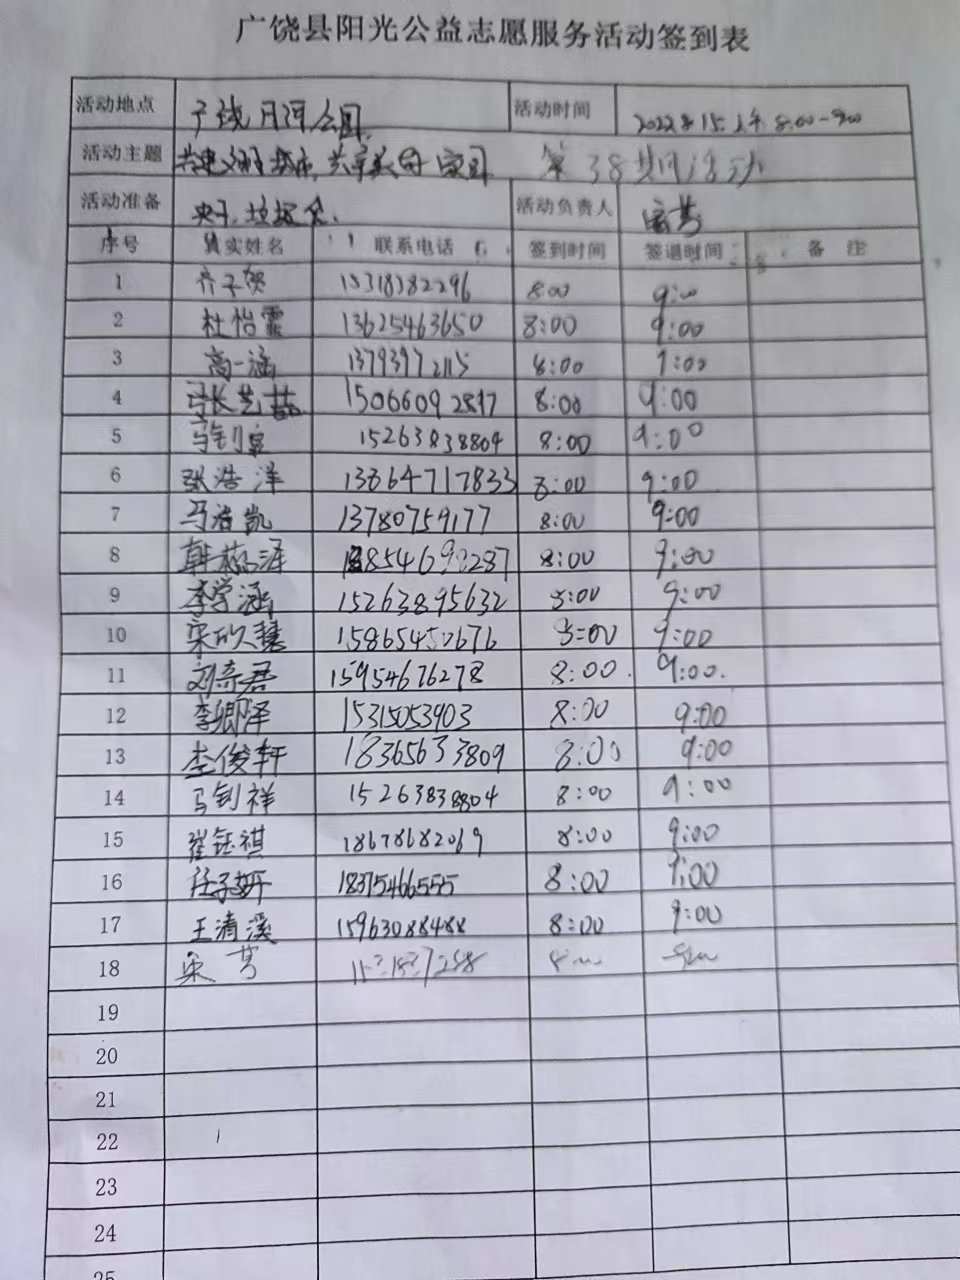 广饶县阳光公益志愿服务活动签到表
活动地点 广饶月河公园 活动时间 2022.8.15.上午 8:00-9:00
活动主题 共建文明城市,共享美好家园 第38期活动
活动准备 夹子,垃圾袋. 活动负责人
序号 真实姓名 联系电话 签到时间 签退时间 备注
1 齐子贺 15318382296 8:00 9:00
2 杜怡霏 13625463650 8:00 9:00
3 高一涵 13793972115 8:00 9:00
4 15066092897 8:00 9:00
5 马钊 15263838804 8:00 9:00
6 张浩洋 13864717833 8:00 9:00
7 马浩凯 13780759177 8:00 9:00
8 8:00 9:00
9 李学涵 15263895632 8:00 9:00
10 8:00 9:00
11 刘奇君 15954676278 8:00. 9:00.
12 李卿泽 15315053903 8:00 9:00
13 李俊轩 18365633809 8:00 9:00
14 马钊祥 15263838804 8:00 9:00
15 崔钰祺 18678682069 8:00 9:00
16 任子妍 18375466555 8:00 9:00
17 王清溪 15963088488 8:00 9:00
18 宋
19
20
21
22
23
24
25